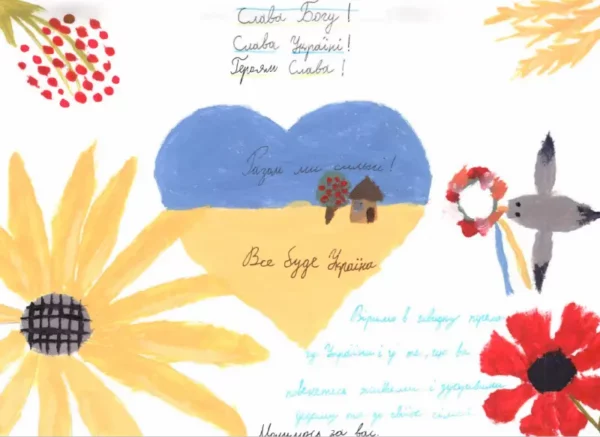 Слава Богу!
Слава Україні!
Героям Слава!
Разом ми сильні!
Все буде Україна
Віримо в швидку
України і у те, що ви
повернетесь живими і здоровими
додому та до своїх сімей.
Молимося за вас.